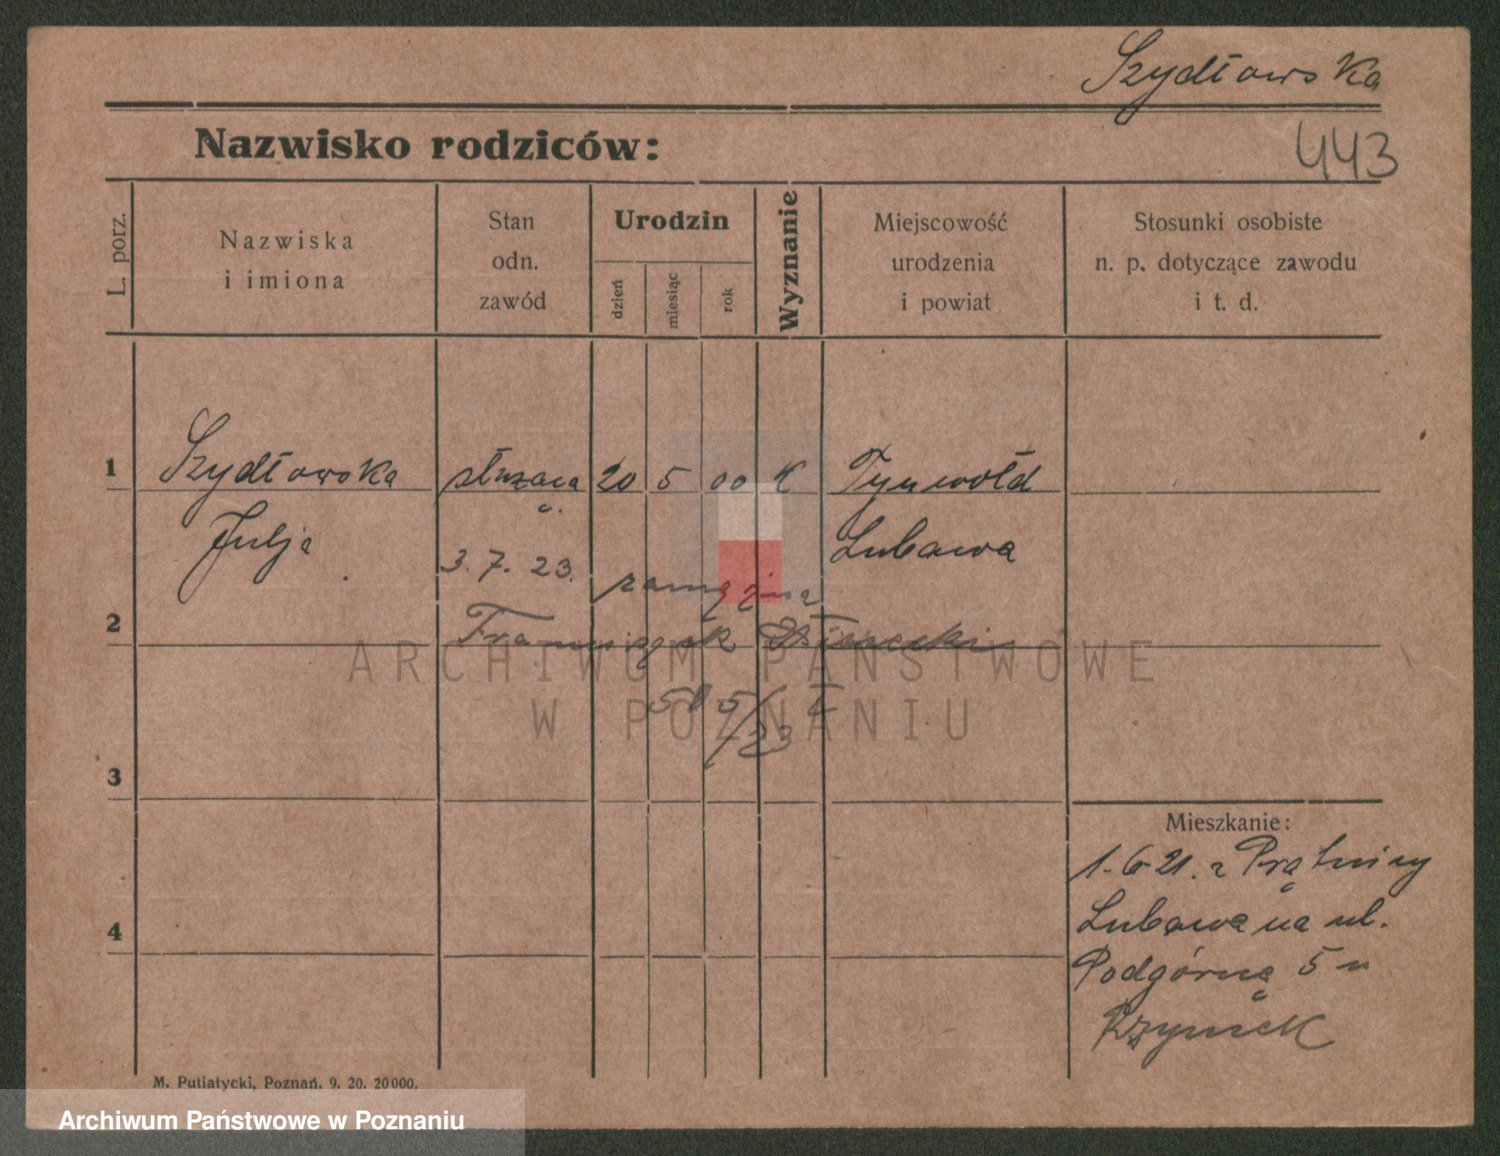 Szydłowska
Nazwisko rodziców:
443
L. porz.
Nazwiska
i imiona
Stan
odn.
zawód
Urodzin
dzień
miesiąc
rok
Wyznanie
Miejscowość
urodzenia
i powiat
Stosunki osobiste
n. p. dotyczące zawodu
i t. d.
1 Szydłowska służąca 20 5 00 K Tynwołd
Julja Lubawa
3.7.23. zamężna
2 Franciszek
5/23
3
Mieszkanie:
1.6.21. z Prątnicy
Lubawa na ul.
Podgórną 5 u
4
M. Putiatycki, Poznań. 9. 20. 20000.
ARCHIWUM PAŃSTWOWE
W POZNANIU
Archiwum Państwowe w Poznaniu